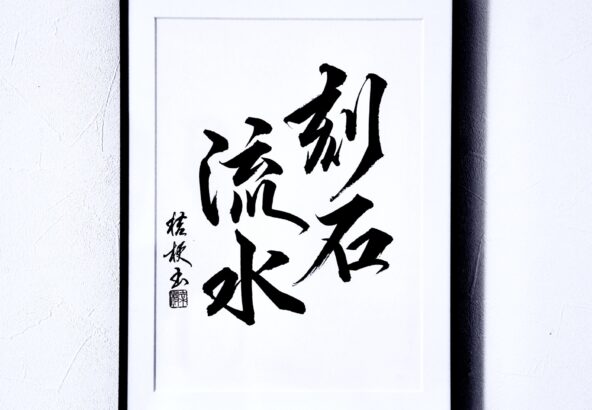 刻石
流水
桔梗書